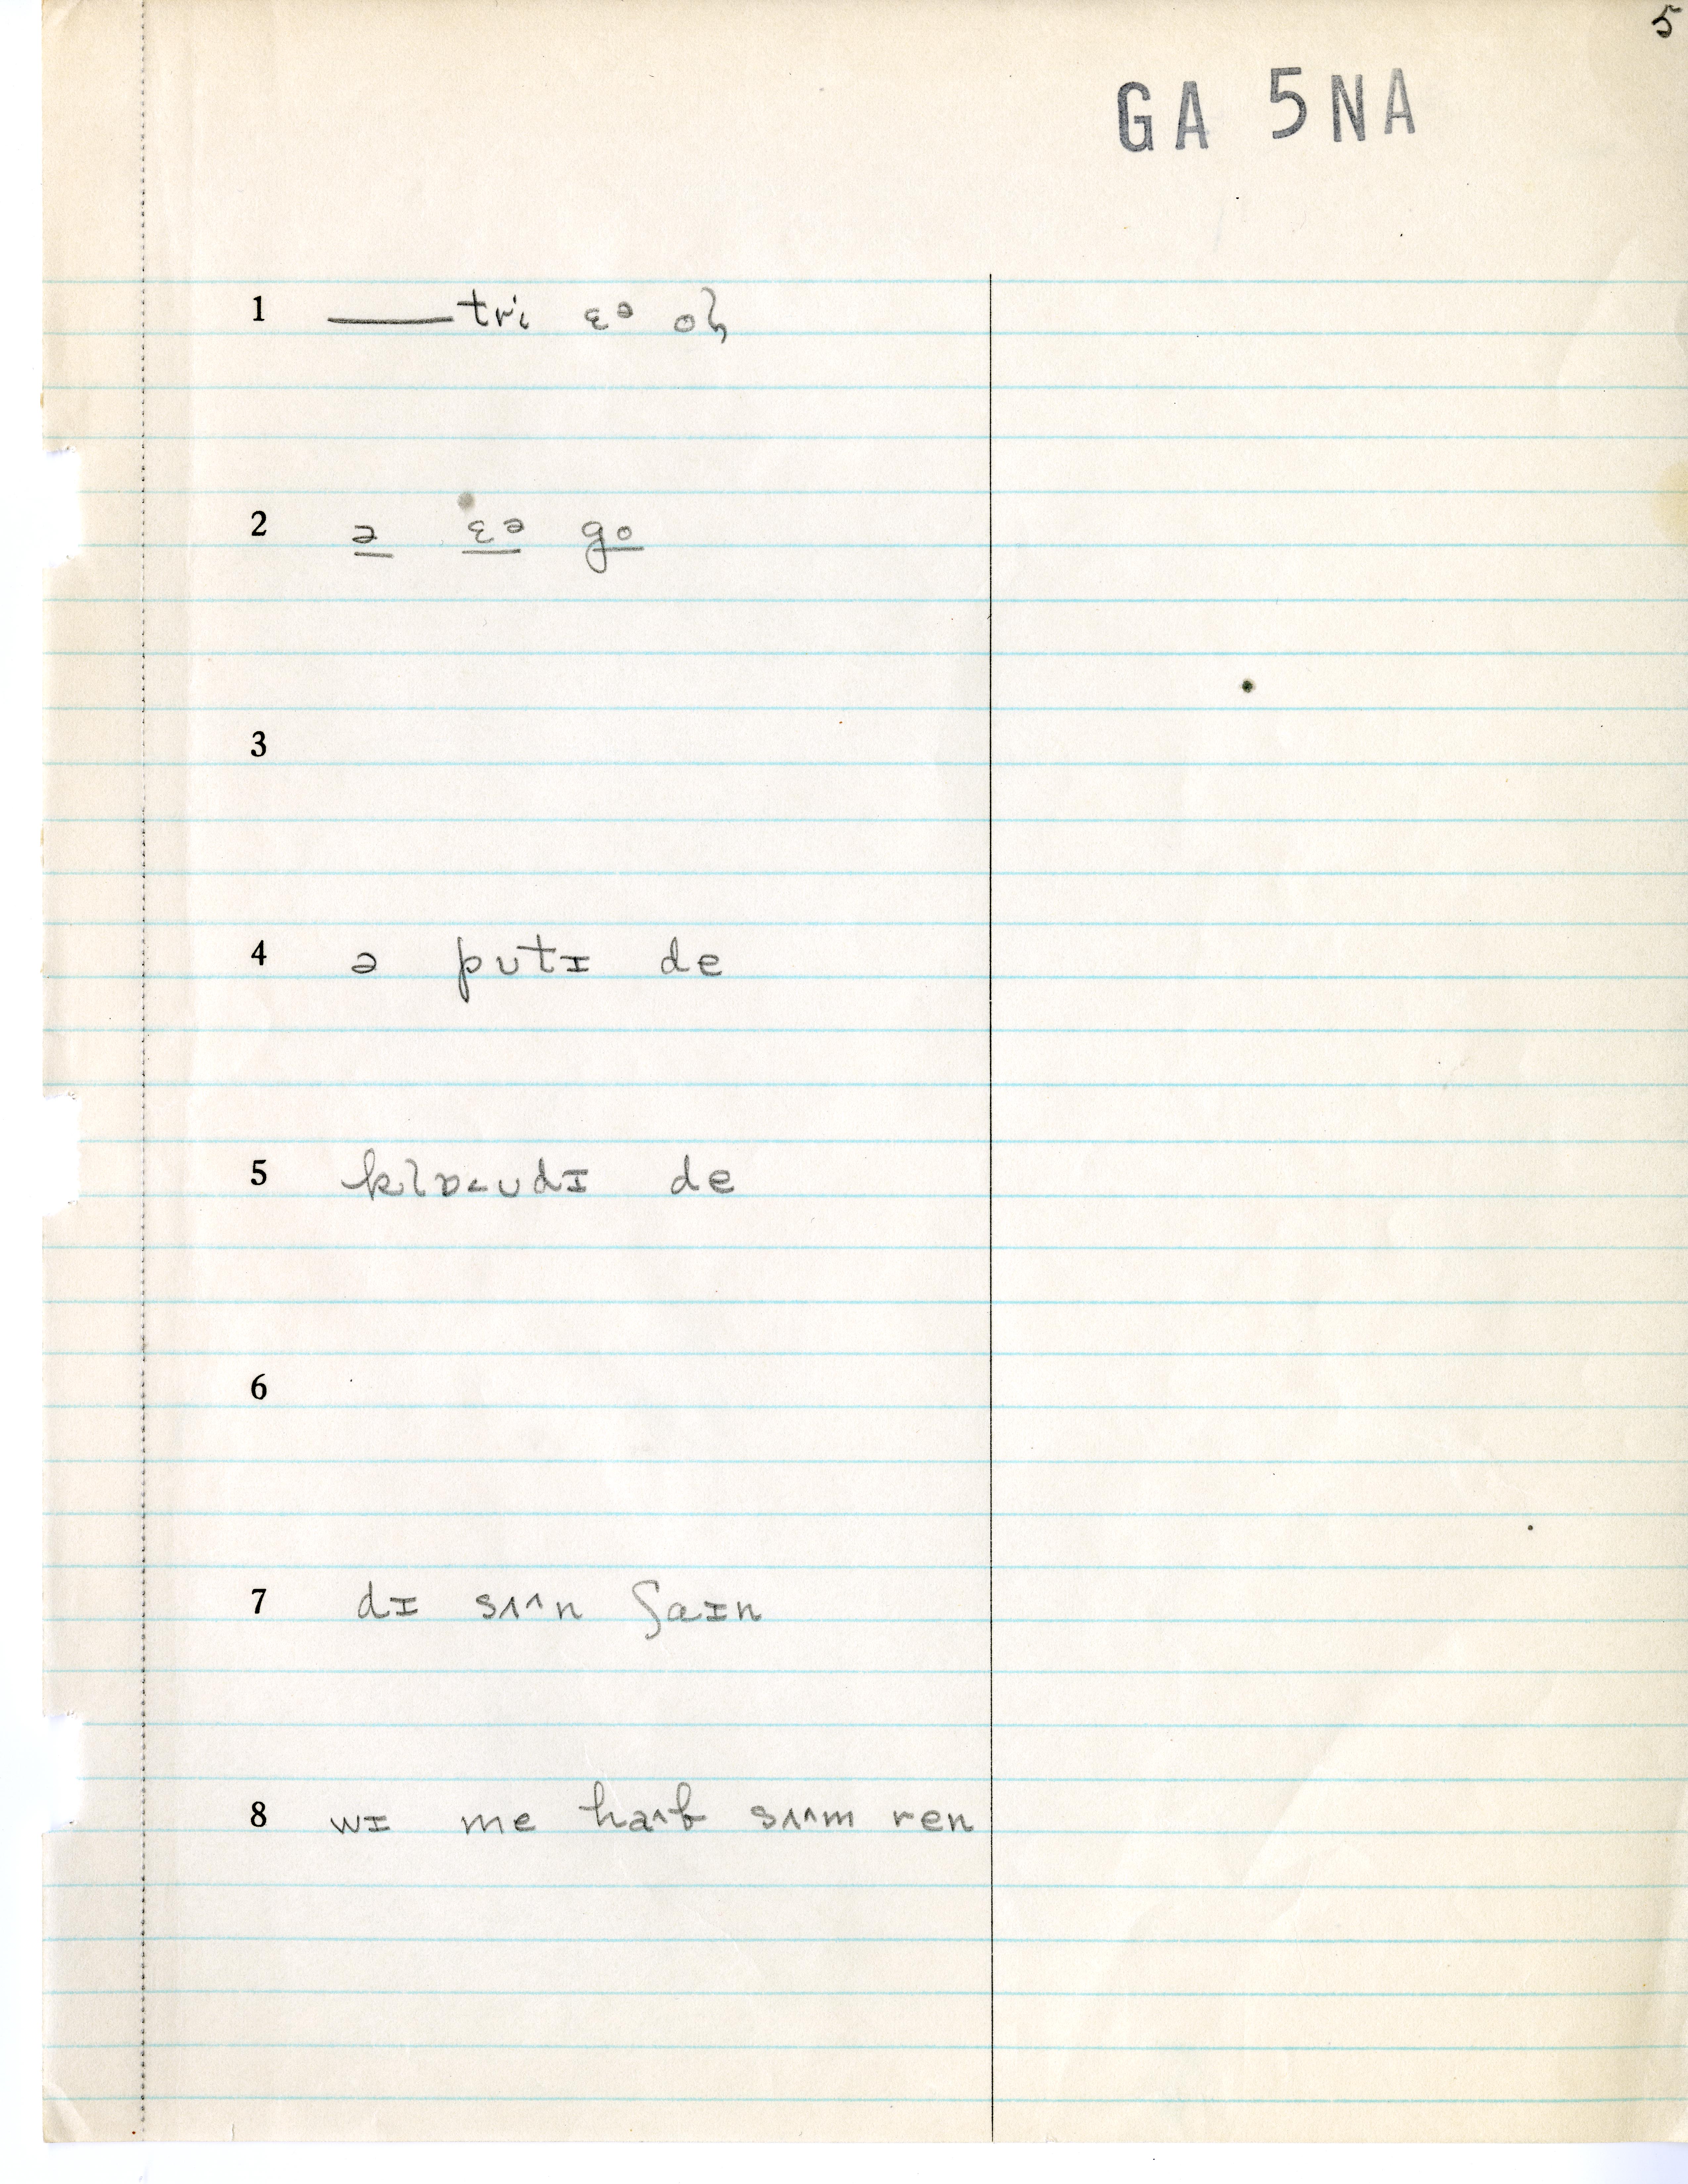 5
GA 5NA
1 ——tri ɛᵊ
2 ə ɛᵊ go
3
4 ə putɪ de
5 klɒ˂udɪ de
6
7 dɪ sʌ^n ʃaɪn
8 wɪ me ha^b sʌ^m ren